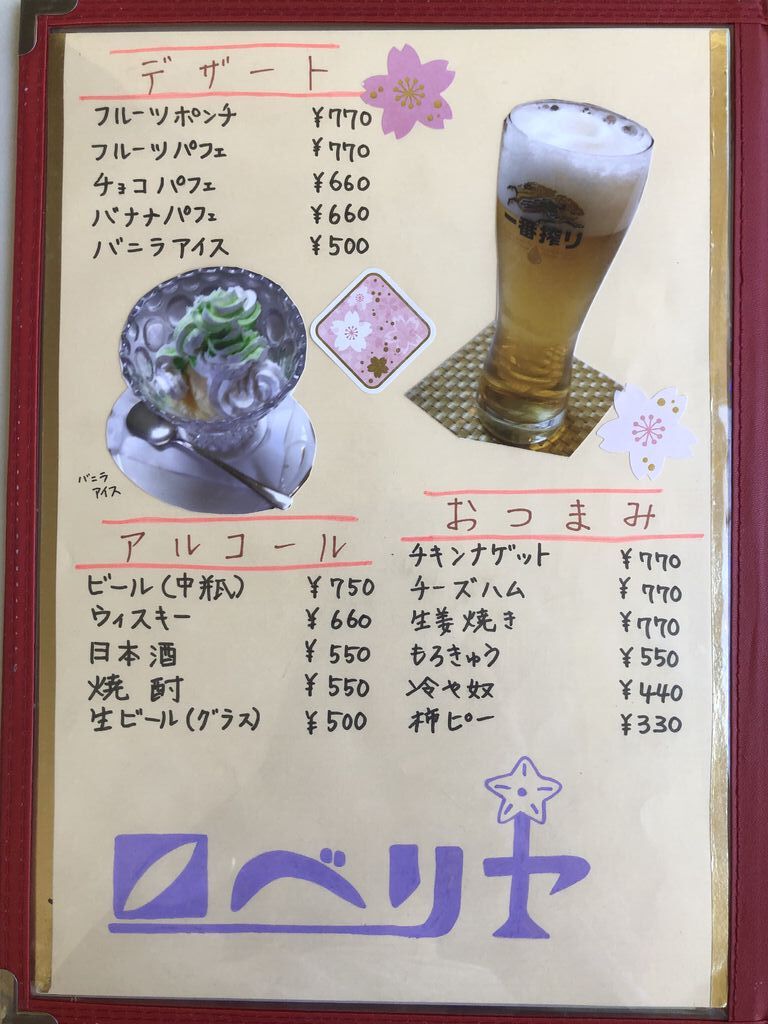 デザート
フルーツポンチ ¥770
フルーツパフェ ¥770
チョコパフェ ¥660
バナナパフェ ¥660
バニラアイス ¥500
一番搾り
バニラ
アイス
アルコール
ビール(中瓶) ¥750
ウィスキー ¥660
日本酒 ¥550
焼酎 ¥550
生ビール(グラス) ¥500
おつまみ
チキンナゲット ¥770
チーズハム ¥770
生姜焼き ¥770
もろきゅう ¥550
冷や奴 ¥440
柿ピー ¥330
ロベリヤ